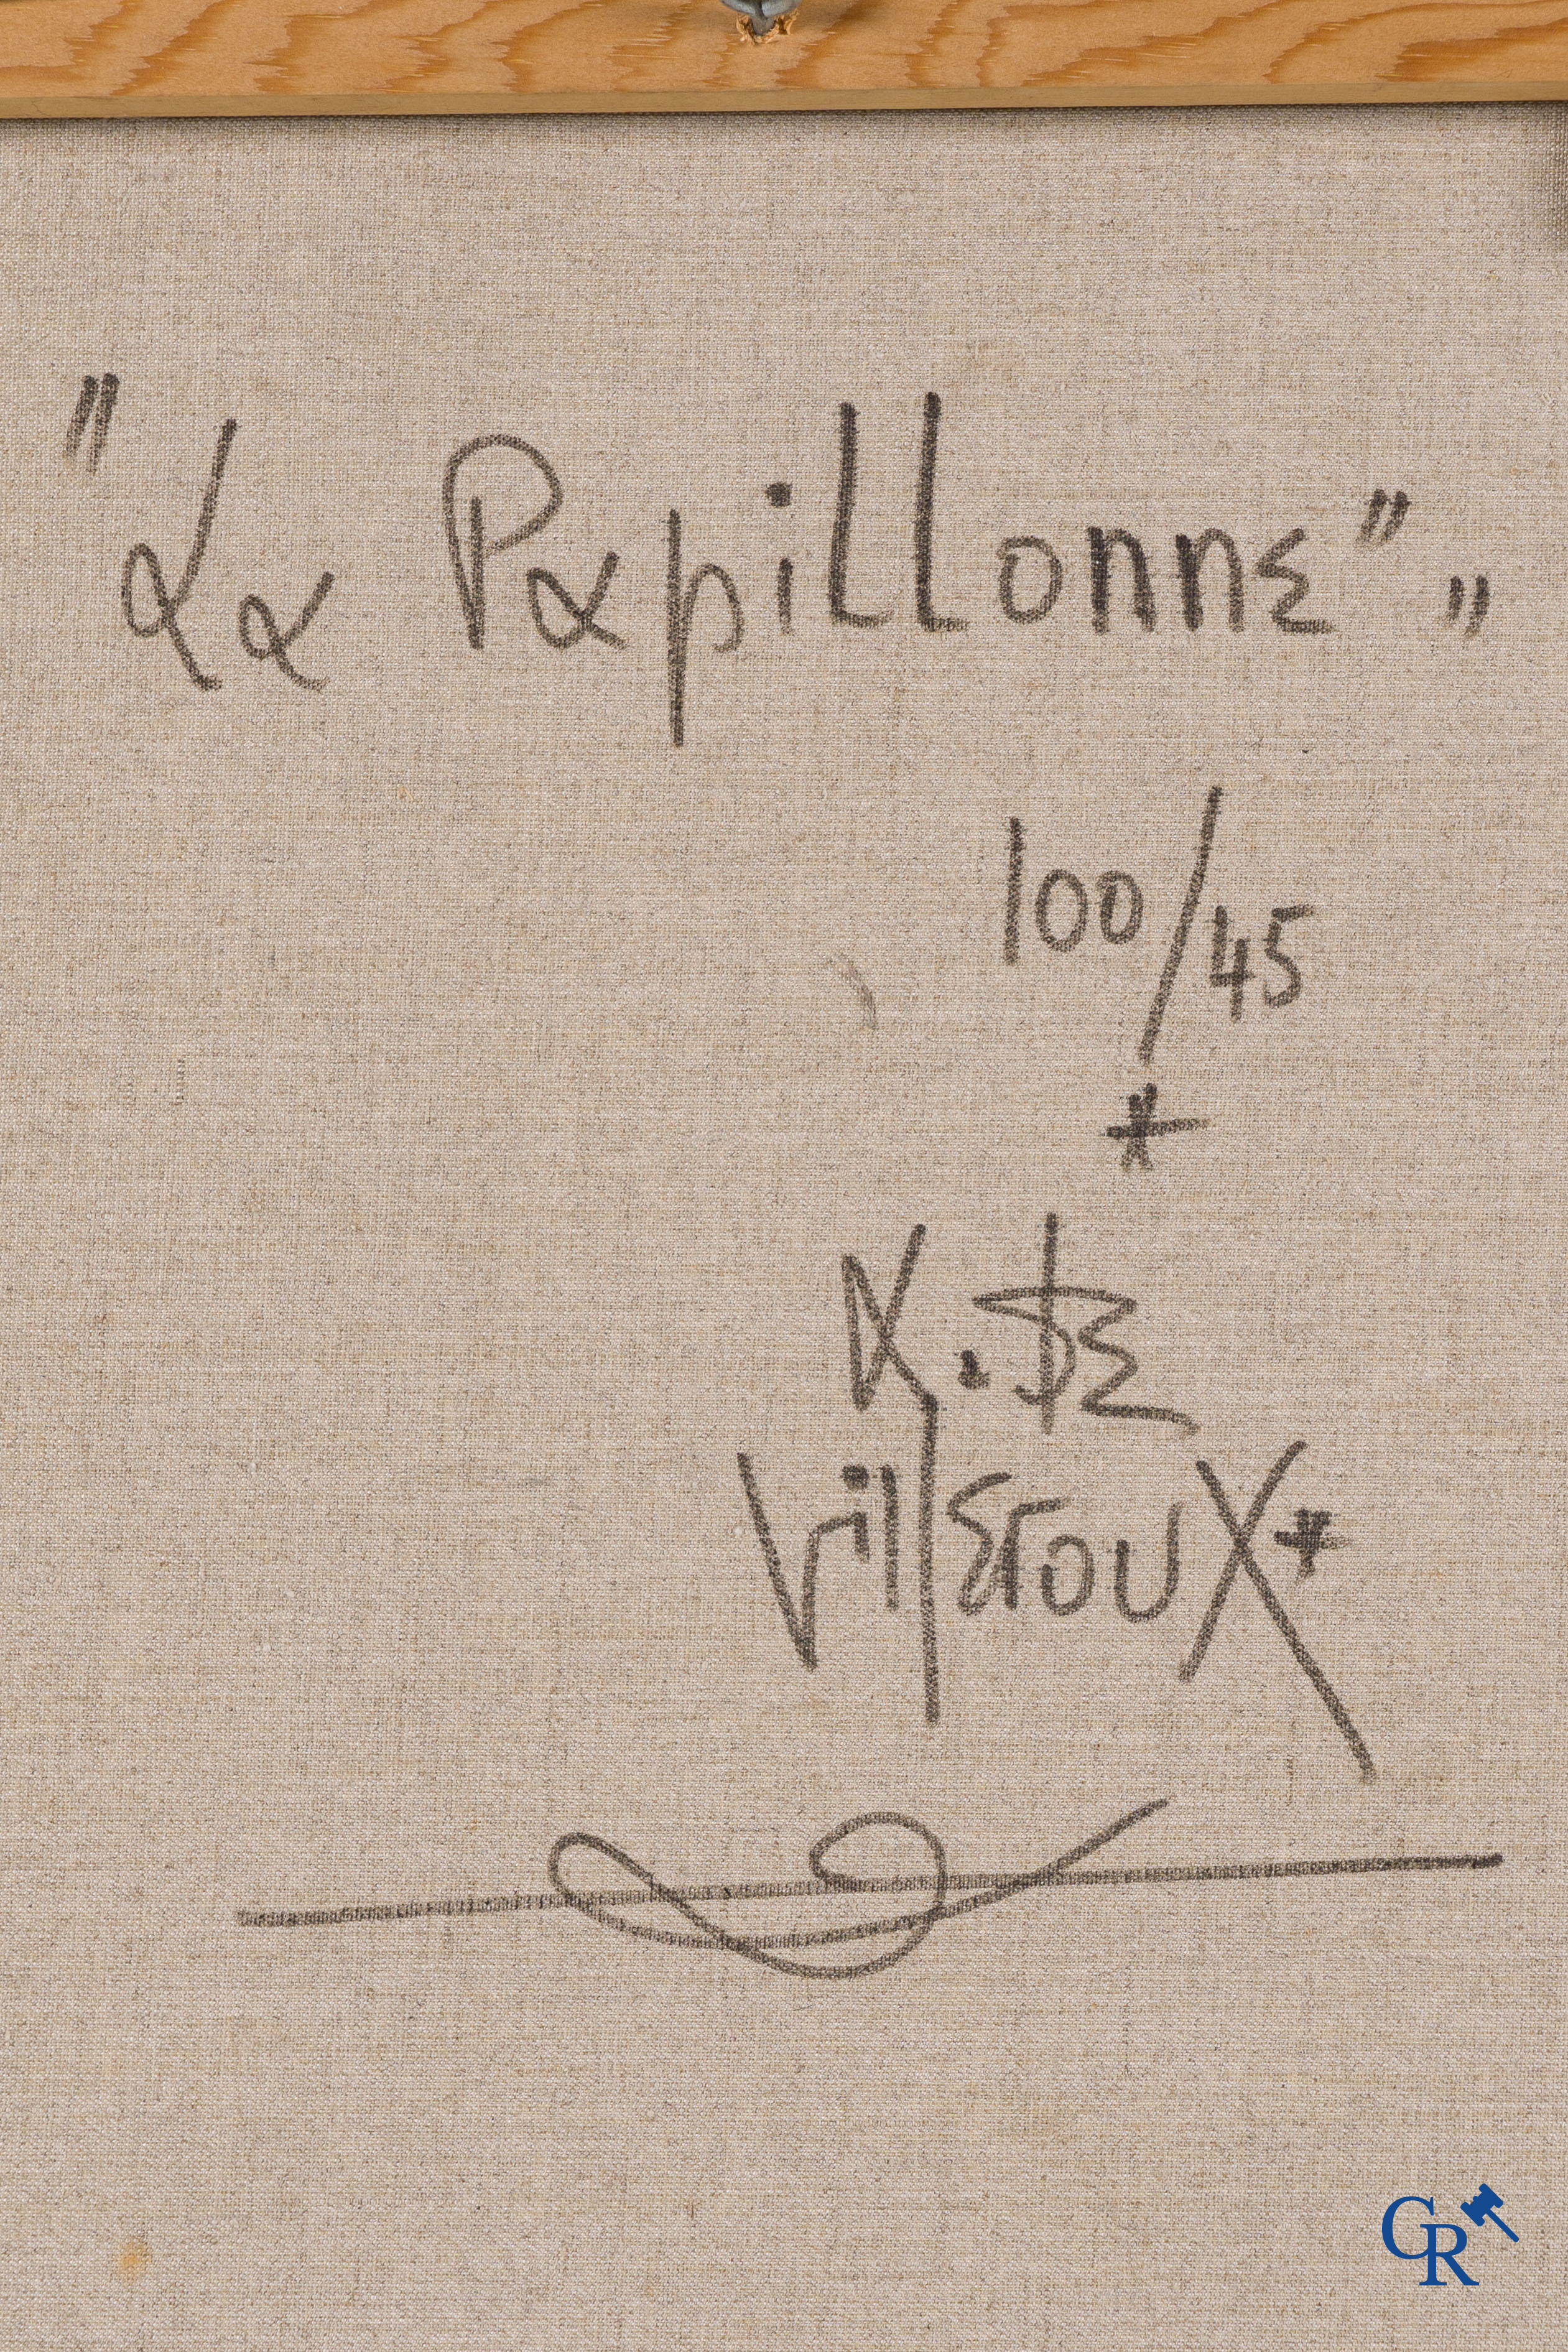 "La Papillonne"
"
100/45
*
K. DE
VillEroux*
CR